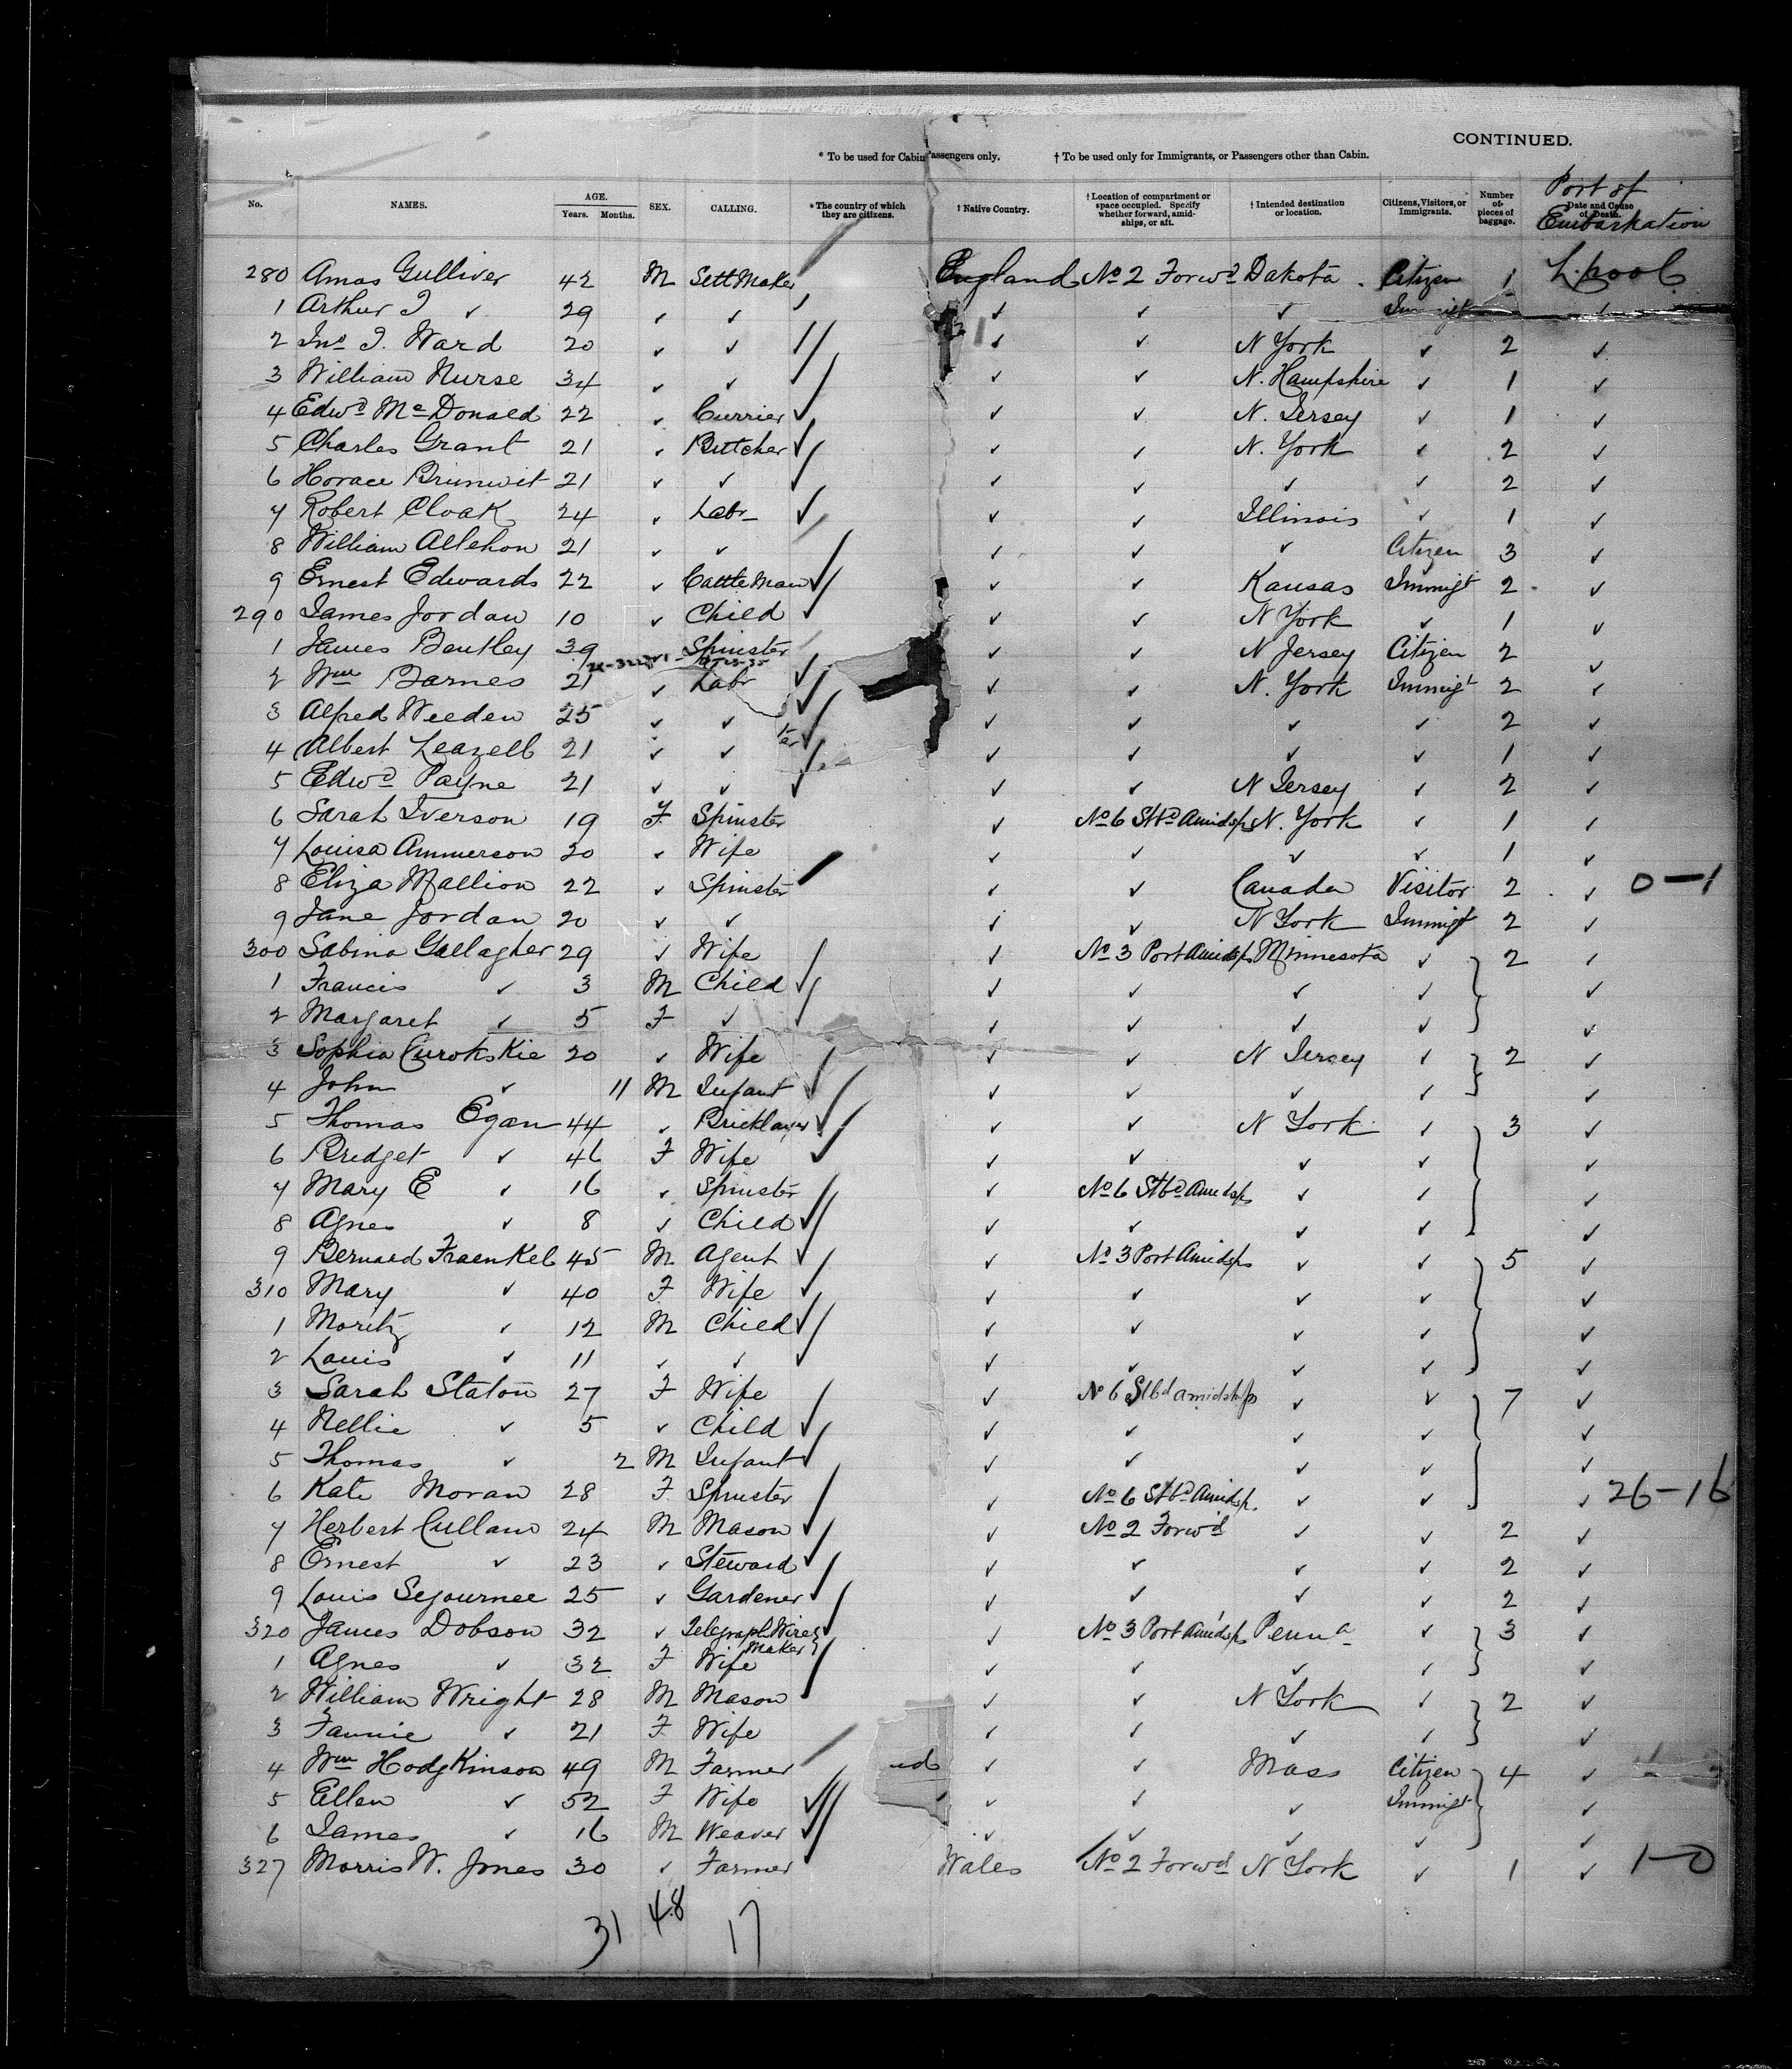 CONTINUED.
* To be used for Cabin Passengers only. † To be used only for Immigrants, or Passengers other than Cabin.
No. NAMES. AGE. Years. Months. SEX. CALLING. * The country of which they are citizens. † Native Country. † Location of compartment or space occupied. Specify whether forward, amidships, or aft. † Intended destination or location. Citizens, Visitors, or Immigrants. Number of pieces of baggage. Date and Cause of Death. Port of Embarkation
280 Amas Gulliver 42 M Sett Maker England No 2 Forwd Dakota Citizen 1 L.pool
1 Arthur J ✓ 29 ✓ ✓ ✓ ✓ ✓ Immigt ✓
2 Jno J. Ward 20 ✓ ✓ ✓ ✓ N York ✓ 2 ✓
3 William Nurse 34 ✓ ✓ ✓ ✓ N. Hampshire ✓ 1 ✓
4 Edwd McDonald 22 ✓ Currier ✓ ✓ N. Jersey ✓ 1 ✓
5 Charles Grant 21 ✓ Butcher ✓ ✓ N. York ✓ 2 ✓
6 Horace Brunwit 21 ✓ ✓ ✓ ✓ ✓ ✓ 2 ✓
7 Robert Cloak 24 ✓ Labr ✓ ✓ Illinois ✓ 1 ✓
8 William Allehon 21 ✓ ✓ ✓ ✓ ✓ Citizen 3 ✓
9 Ernest Edwards 22 ✓ Cattle Man ✓ ✓ Kansas Immigt 2 ✓
290 James Jordan 10 ✓ Child ✓ ✓ N York ✓ 1 ✓
1 James Bentley 39 Spinster ✓ ✓ N Jersey Citizen 2 ✓
2 Wm Barnes 21 ✓ Labr ✓ ✓ N. York Immigt 2 ✓
3 Alfred Weeden 25 ✓ ✓ ✓ ✓ ✓ ✓ 2 ✓
4 Albert Leazell 21 ✓ ✓ ✓ ✓ ✓ ✓ 1 ✓
5 Edwd Payne 21 ✓ ✓ ✓ ✓ N Jersey ✓ 2 ✓
6 Sarah Iverson 19 F Spinster ✓ No 6 Stbd Amidsps N. York ✓ 1 ✓
7 Louisa Ammerson 20 ✓ Wife ✓ ✓ ✓ ✓ 1 ✓
8 Eliza Mallion 22 ✓ Spinster ✓ ✓ Canada Visitor 2 ✓ 0-1
9 Jane Jordan 20 ✓ ✓ ✓ ✓ N York Immigt 2 ✓
300 Sabina Gallagher 29 ✓ Wife ✓ No 3 Port Amidsps Minnesota ✓ 2 ✓
1 Francis ✓ 3 M Child ✓ ✓ ✓ ✓ ✓
2 Margaret ✓ 5 F ✓ ✓ ✓ ✓ ✓ ✓
3 Sophia Curokskie 20 ✓ Wife ✓ ✓ N Jersey ✓ 2 ✓
4 John ✓ 11 M Infant ✓ ✓ ✓ ✓ ✓
5 Thomas Egan 44 ✓ Bricklayer ✓ ✓ N York ✓ 3 ✓
6 Bridget ✓ 46 F Wife ✓ ✓ ✓ ✓ ✓
7 Mary E ✓ 16 ✓ Spinster ✓ No 6 Stbd Amidsps ✓ ✓ ✓
8 Agnes ✓ 8 ✓ Child ✓ ✓ ✓ ✓ ✓
9 Bernard Fraenkel 45 M Agent ✓ No 3 Port Amidsps ✓ ✓ 5 ✓
310 Mary ✓ 40 F Wife ✓ ✓ ✓ ✓ ✓
1 Moritz ✓ 12 M Child ✓ ✓ ✓ ✓ ✓
2 Louis ✓ 11 ✓ ✓ ✓ ✓ ✓ ✓ ✓
3 Sarah Staton 27 F Wife ✓ No 6 Stbd amidships ✓ ✓ 7 ✓
4 Nellie ✓ 5 ✓ Child ✓ ✓ ✓ ✓ ✓
5 Thomas ✓ 2 M Infant ✓ ✓ ✓ ✓ ✓
6 Kate Moran 28 F Spinster ✓ No 6 Stbd Amidsp. ✓ ✓ ✓ 26-16
7 Herbert Cullam 24 M Mason ✓ No 2 Forwd ✓ ✓ 2 ✓
8 Ernest ✓ 23 ✓ Steward ✓ ✓ ✓ ✓ 2 ✓
9 Louis Sejournee 25 ✓ Gardener ✓ ✓ ✓ ✓ 2 ✓
320 James Dobson 32 ✓ Telegraph Wire Maker ✓ No 3 Port Amidsps Penna ✓ 3 ✓
1 Agnes ✓ 32 F Wife ✓ ✓ ✓ ✓ ✓
2 William Wright 28 M Mason ✓ ✓ N York ✓ 2 ✓
3 Fannie ✓ 21 F Wife ✓ ✓ ✓ ✓ ✓
4 Wm Hodgkinson 49 M Farmer ✓ ✓ Mass Citizen 4 ✓
5 Ellen ✓ 52 F Wife ✓ ✓ ✓ Immigt ✓
6 James ✓ 16 M Weaver ✓ ✓ ✓ ✓ ✓
327 Morris W. Jones 30 ✓ Farmer Wales No 2 Forwd N York ✓ 1 ✓ 1-0
31 48 17